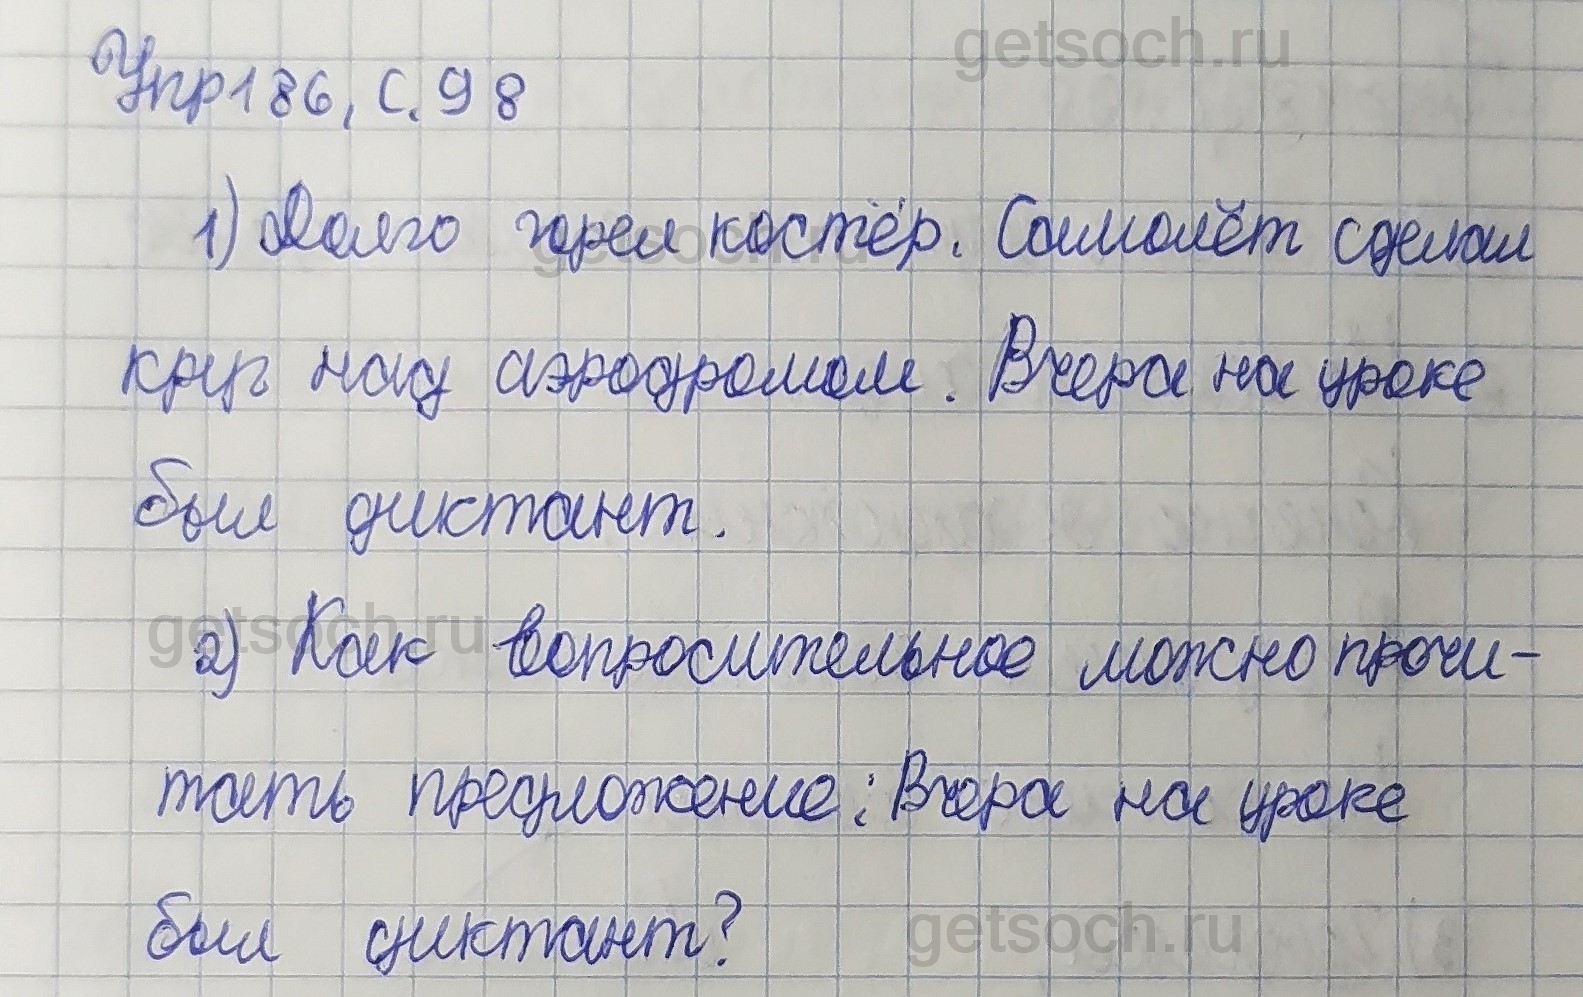 getsoch.ru
Упр 186, с. 98
1) Долго горел костёр. Самолёт сделал
getsoch.ru
круг над аэродромом. Вчера на уроке
был диктант.
getsoch.ru
2) Как вопросительное можно прочи-
тать предложение: Вчера на уроке
был диктант?
getsoch.ru